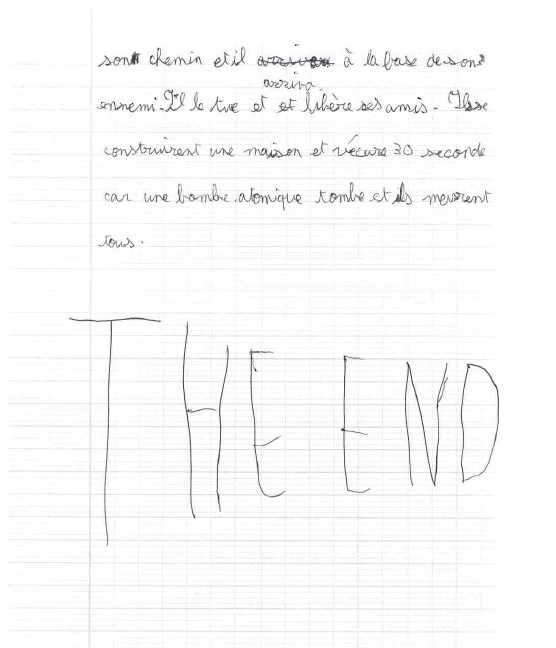 son chemin et il à la base de son
arriva.
ennemi. Il le tue et et libère ses amis. Ils se
construirent une maison et vécure 30 seconde
car une bombe atomique tombe et ils meurent
tous.
THE END